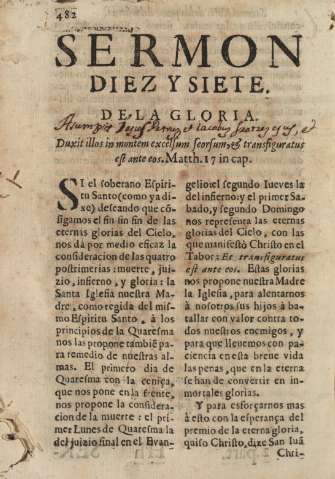 482
SERMON
DIEZ Y SIETE.
DE LA GLORIA.
Asumpsit Jesus Petrum et Iacobum et
Duxit illos in montem excelsum seorsum, & transfiguratus
est ante eos. Matth. 17 in cap.
SI el soberano Espiri-
tu Santo (como ya di-
xe) deseando que cō-
sigamos el fin sin fin de las
eternas glorias del Cielo,
nos dà por medio eficaz la
consideracion de las quatro
postrimerias: muerte, jui-
zio, infierno, y gloria: la
Santa Iglesia nuestra Ma-
dre, como regida del mis-
mo Espiritu Santo, à los
principios de la Quaresma
nos las propone tambiē pa-
ra remedio de nuestras al-
mas. El primero dia de
Quaresma con la ceniça,
que nos pone en la frente,
nos propone la considera-
cion de la muerte: el pri-
mer Lunes de Quaresma la
del juizio final en el Evan-
gelio: el segundo Iueves la
del infierno; y el primer Saba-
do, y segundo Domingo
nos representa las eternas
glorias del Cielo, con las
que manifestò Christo en el
Tabor: Et transfiguratus
est ante eos. Estas glorias
nos propone nuestra Madre
la Iglesia, para alentarnos
à nosotros sus hijos à ba-
tallar con valor contra to-
dos nuestros enemigos, y
para que llevemos con pa-
ciencia en esta breve vida
las penas, que en la eterna
se han de convertir en in-
mortales glorias.
Y para esforçarnos mas
à esto con la esperança del
premio de la eterna gloria,
quiso Christo, dize San Iuā
Chri-